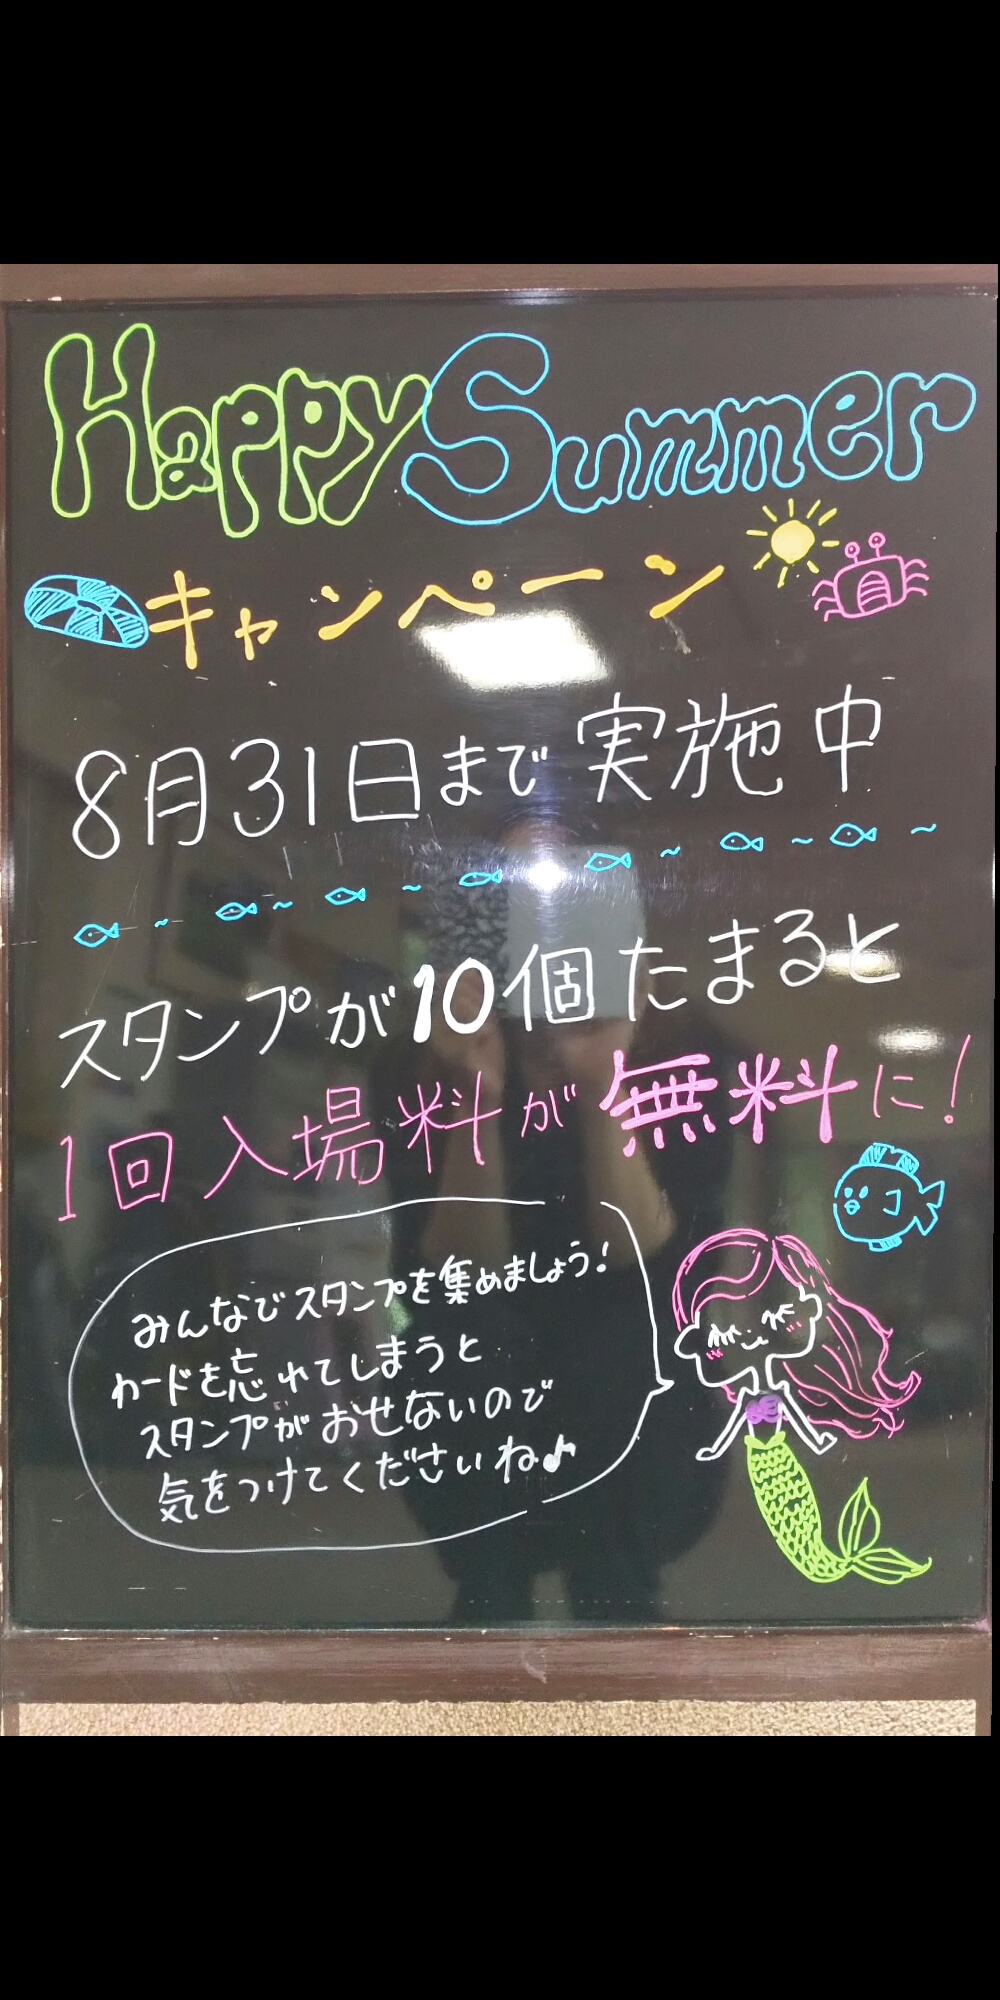 Happy Summer
キャンペーン
8月31日まで実施中
スタンプが10個たまると
1回入場料が無料に!
みんなでスタンプを集めましょう!
カードを忘れてしまうと
スタンプがおせないので
気をつけてくださいね♪